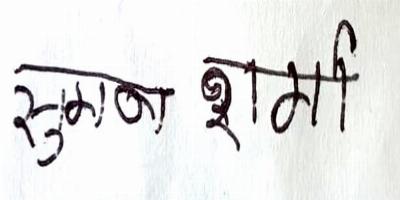 सुमन शर्मा